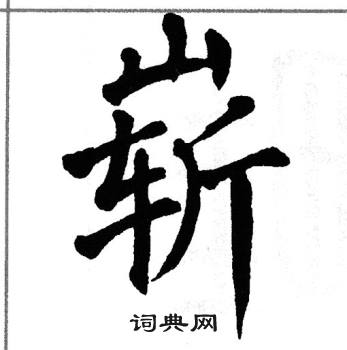 崭
词典网